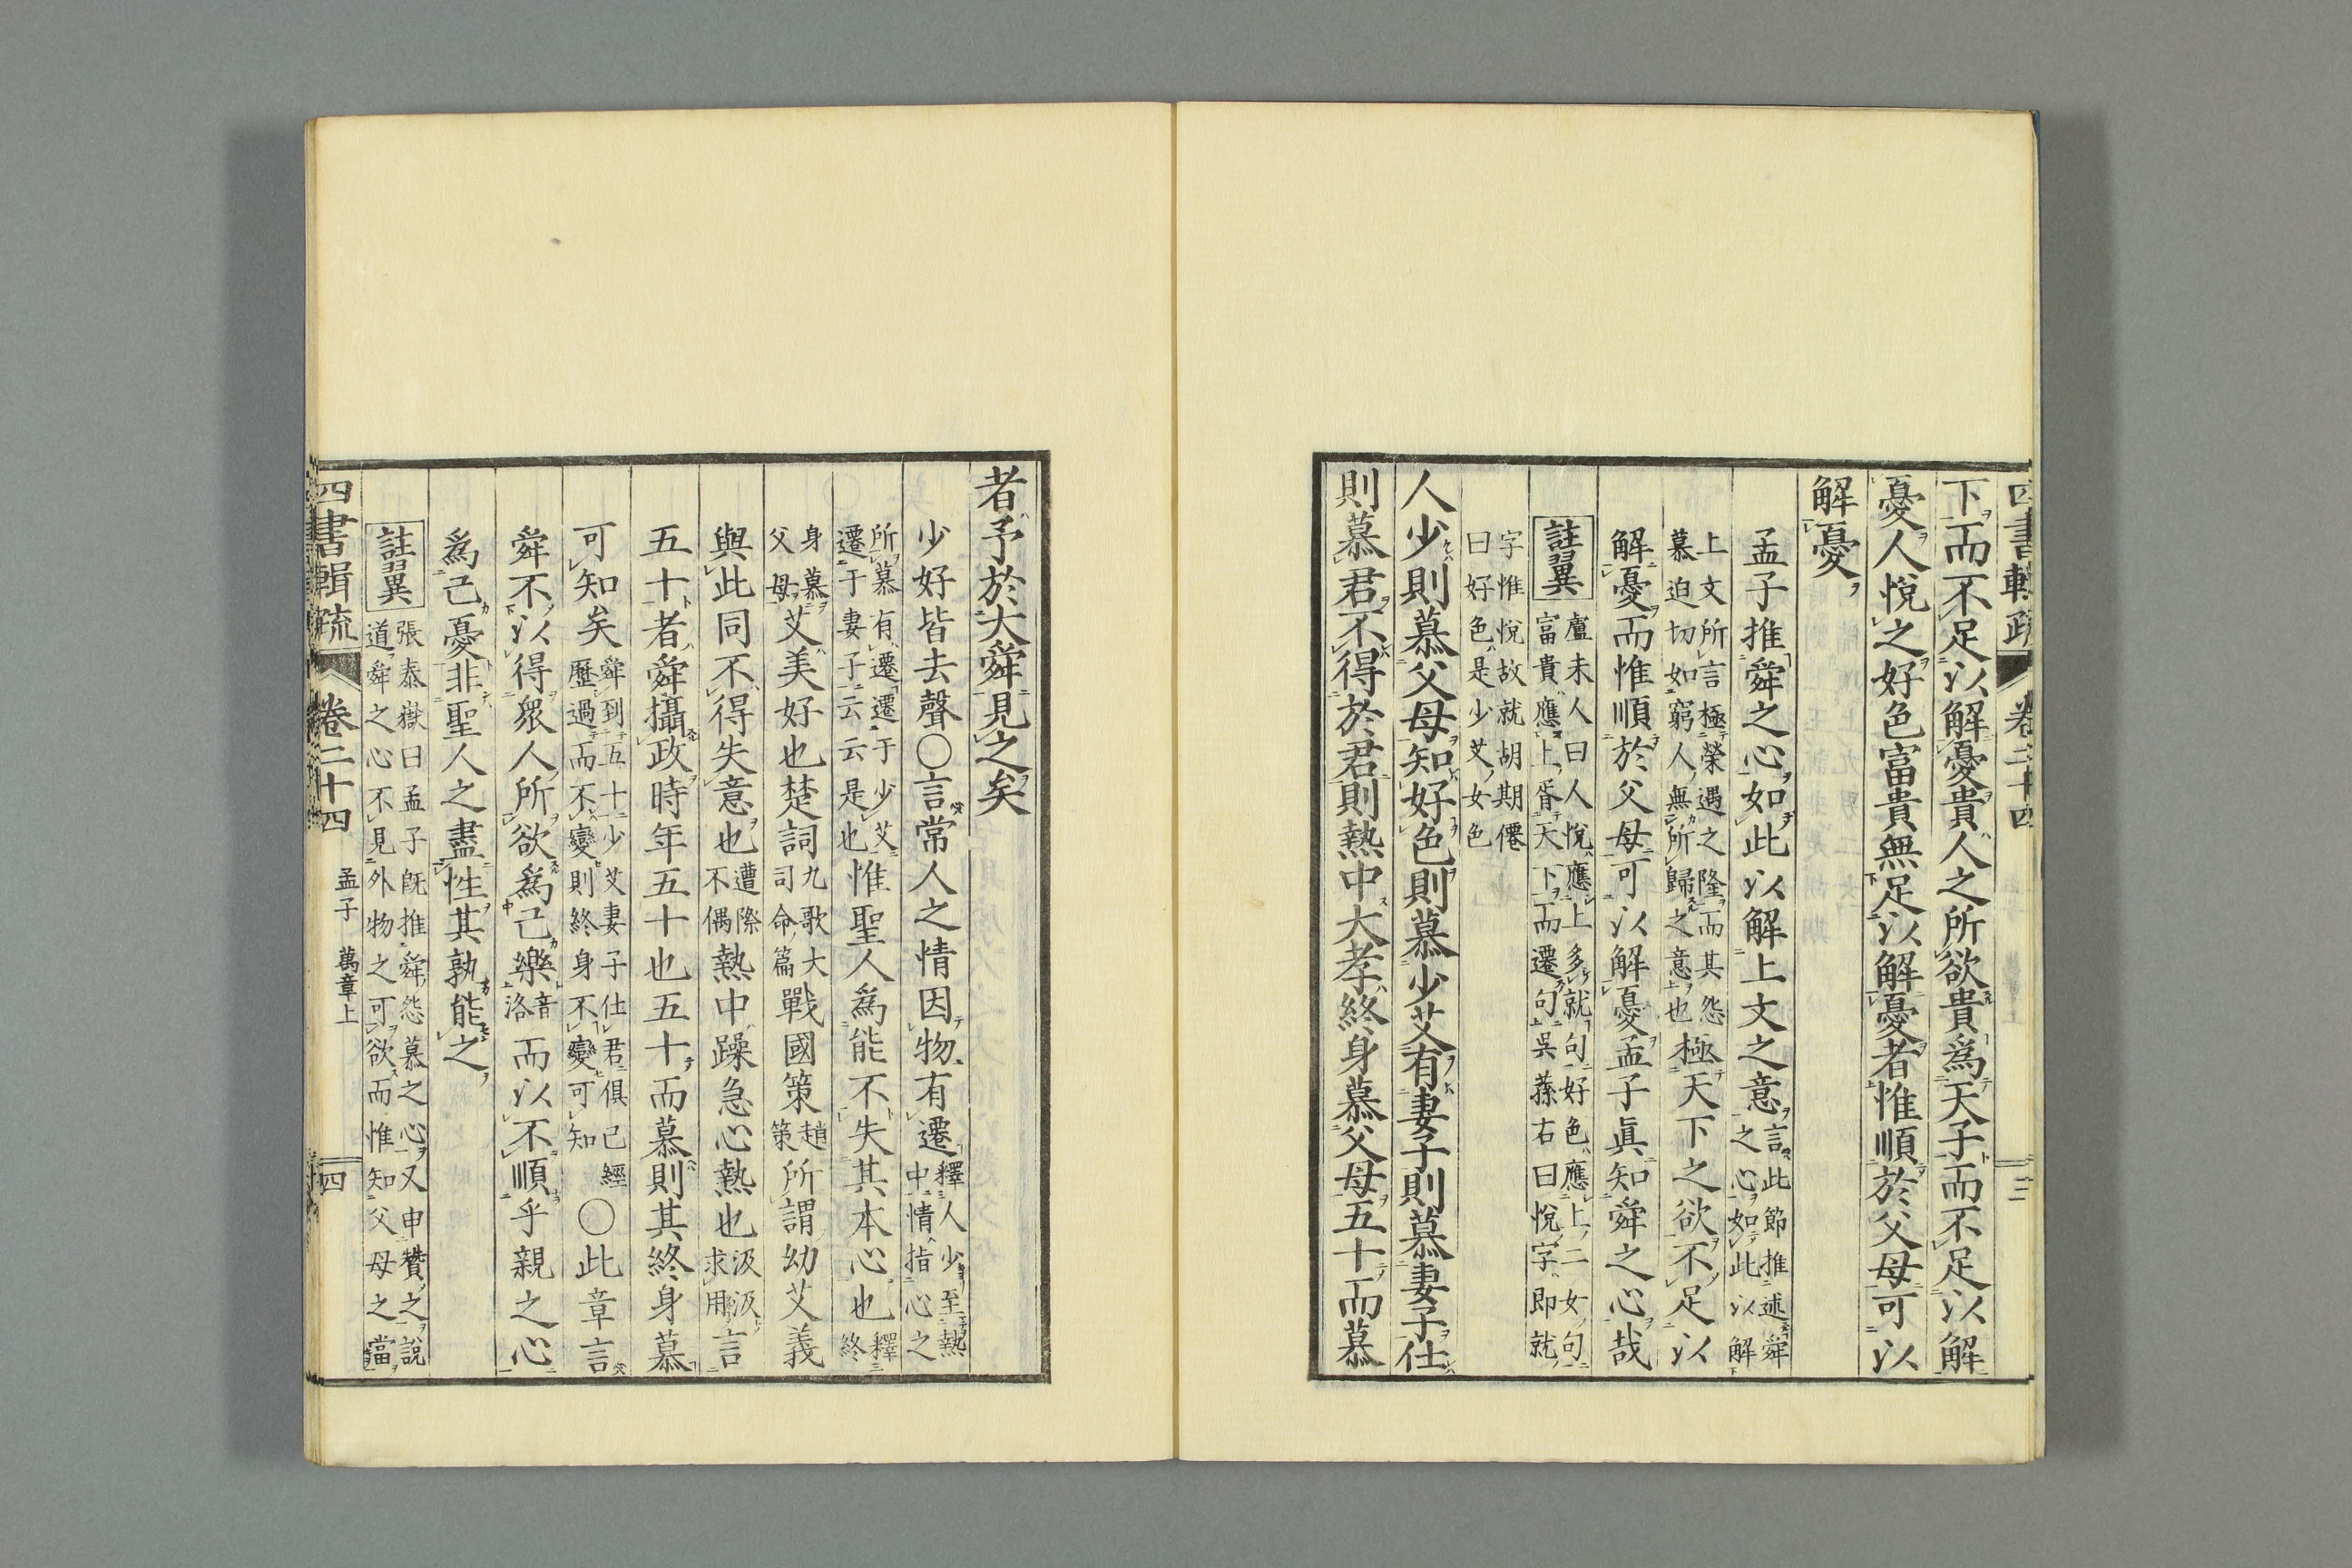 四書輯疏 卷二十四 三
下而不足以解憂貴人之所欲貴爲天子而不足以解
憂人悅之好色富貴無足以解憂者惟順於父母可以
解憂
孟子推舜之心如此以解上文之意言此節推述舜
之心如此以解
上文所言極榮遇之隆而其怨
慕迫切如窮人無所歸之意也極天下之欲不足以
解憂而惟順於父母可以解憂孟子眞知舜之心哉
註翼 盧未人曰人悅應上多就句好色應上二女句
富貴應上胥天下而遷句吳蓀右曰悅字即就
字惟悅故就胡期僊
曰好色是少艾女色
人少則慕父母知好色則慕少艾有妻子則慕妻子仕
則慕君不得於君則熱中大孝終身慕父母五十而慕
者予於大舜見之矣
少好皆去聲○言常人之情因物有遷釋人少至熱
中情指心之
所慕有遷遷于少艾
遷于妻子云云是也惟聖人爲能不失其本心也釋
終
身慕
父母艾美好也楚詞九歌大
司命篇戰國策趙
策所謂幼艾義
與此同不得失意也遭際
不偶熱中躁急心熱也汲汲
求用言
五十者舜攝政時年五十也五十而慕則其終身慕
可知矣舜到五十少艾妻子仕君俱已經
歷過而不變則終身不變可知○此章言
舜不以得衆人所欲爲己樂音
洛而以不順乎親之心
爲己憂非聖人之盡性其孰能之
註翼 張泰嶽曰孟子旣推舜怨慕之心又申贊之說
道舜之心不見外物之可欲而惟知父母之當
四書輯疏 卷二十四 孟子 萬章上 四